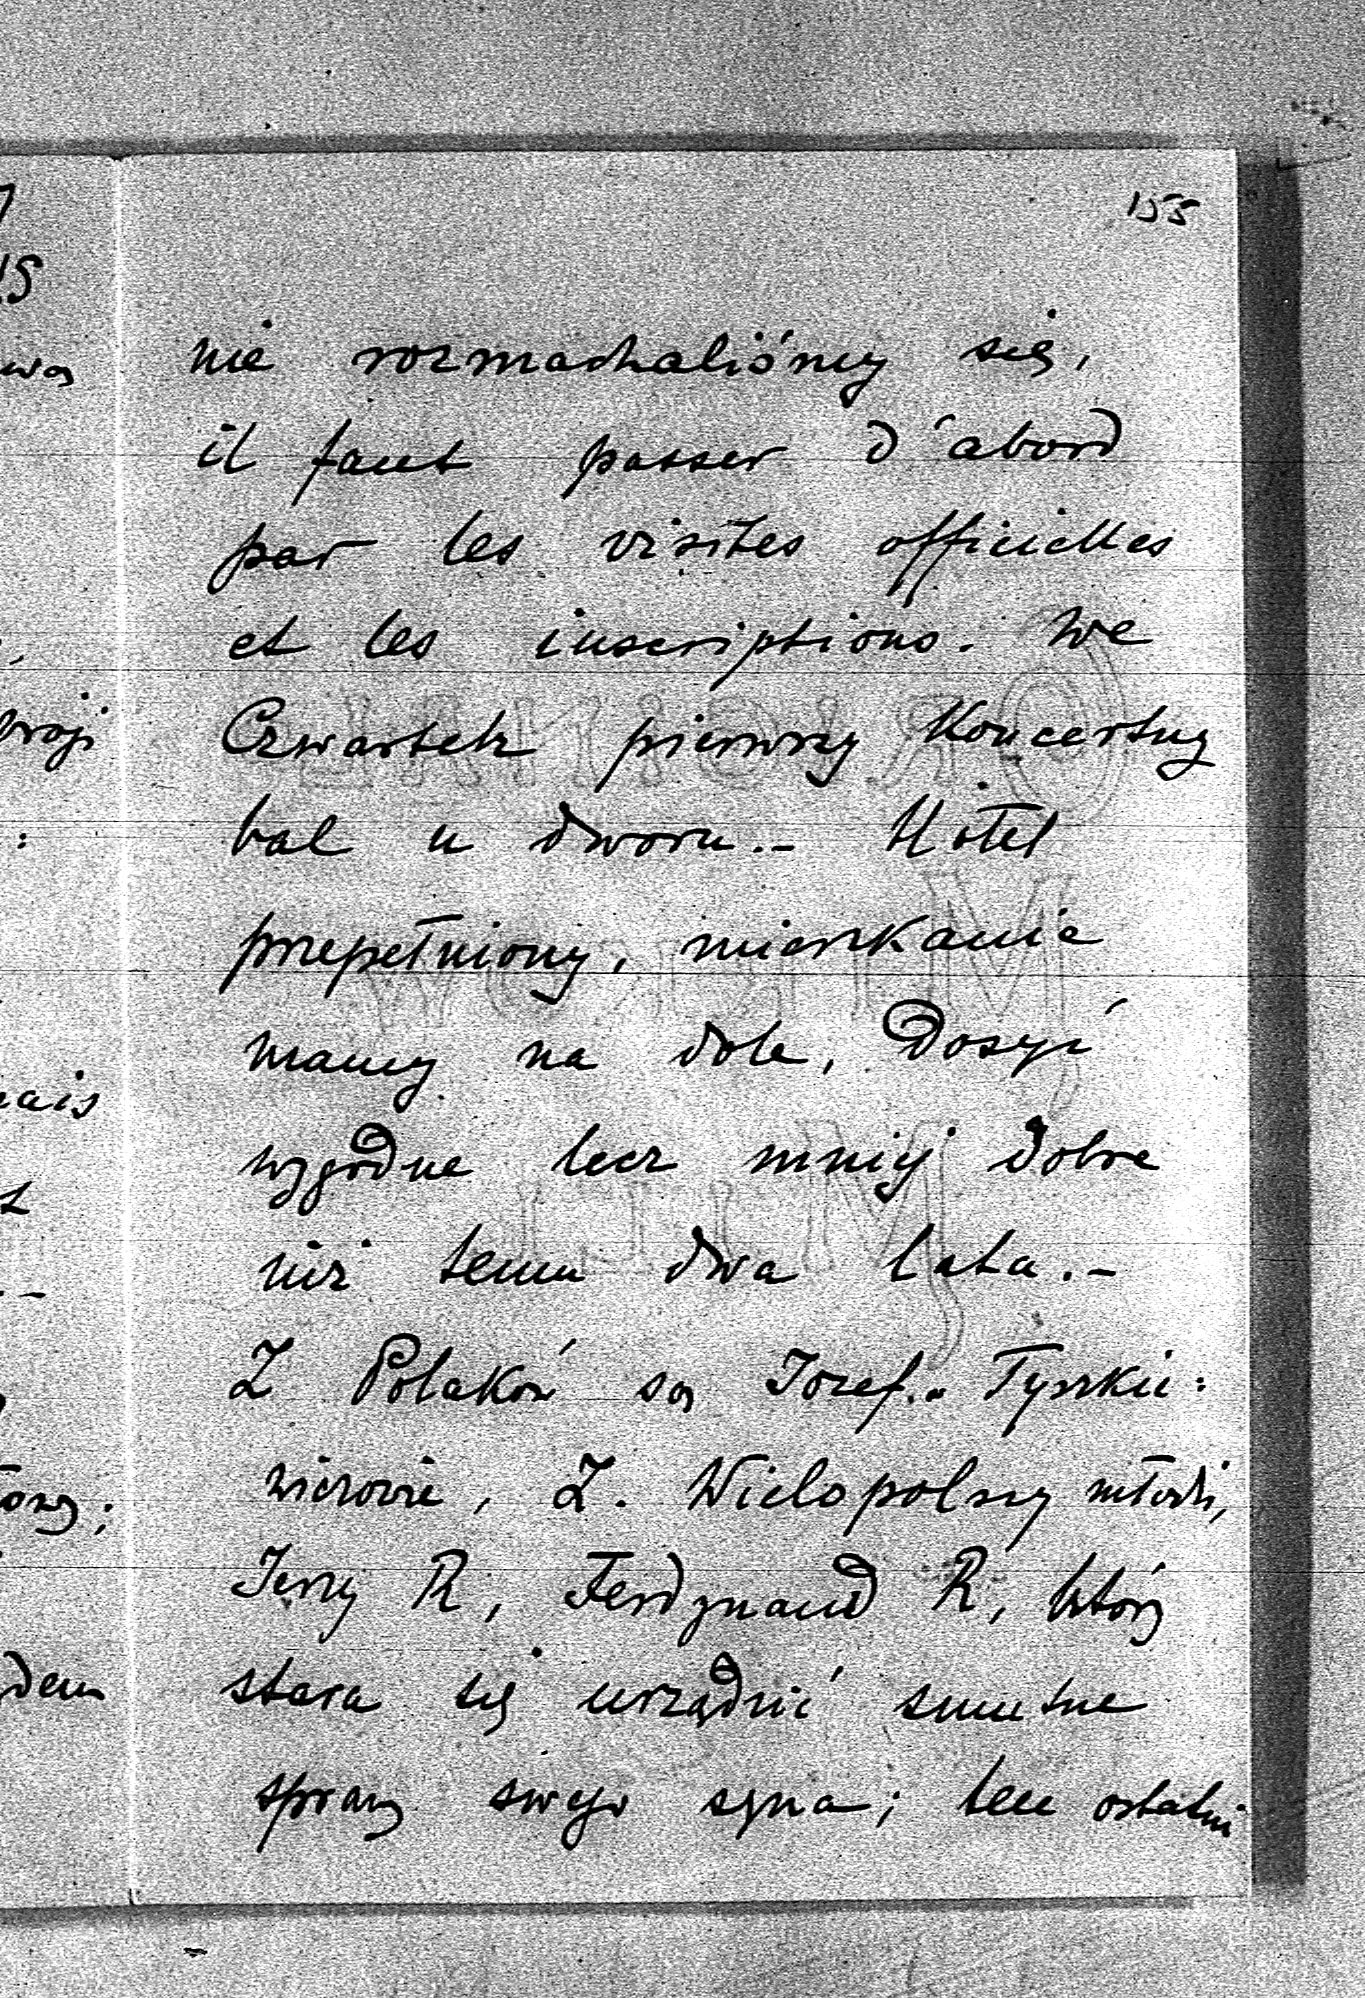 155
nie rozmachaliśmy się,
il faut passer d'abord
par les visites officielles
et les inscriptions. We
Czwartek pierwszy Koncertny
bal u dworu.- Hôtel
przepełniony, mieszkanie
mamy na dole, Dosyć
wygodne lecz mniej dobre
niż temu dwa lata.-
Z Polaków są Józef.. Tyszkie:
wiczowie, Z. Wielopolscy młodzi,
Jerzy R, Ferdynand R, który
stara się urządzić smutne
sprawy swego syna; lecz ostatni